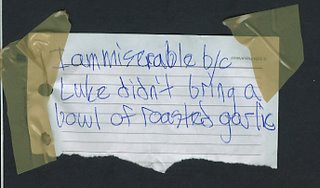 I am miserable b/c
Luke didn't bring a
bowl of roasted garlic